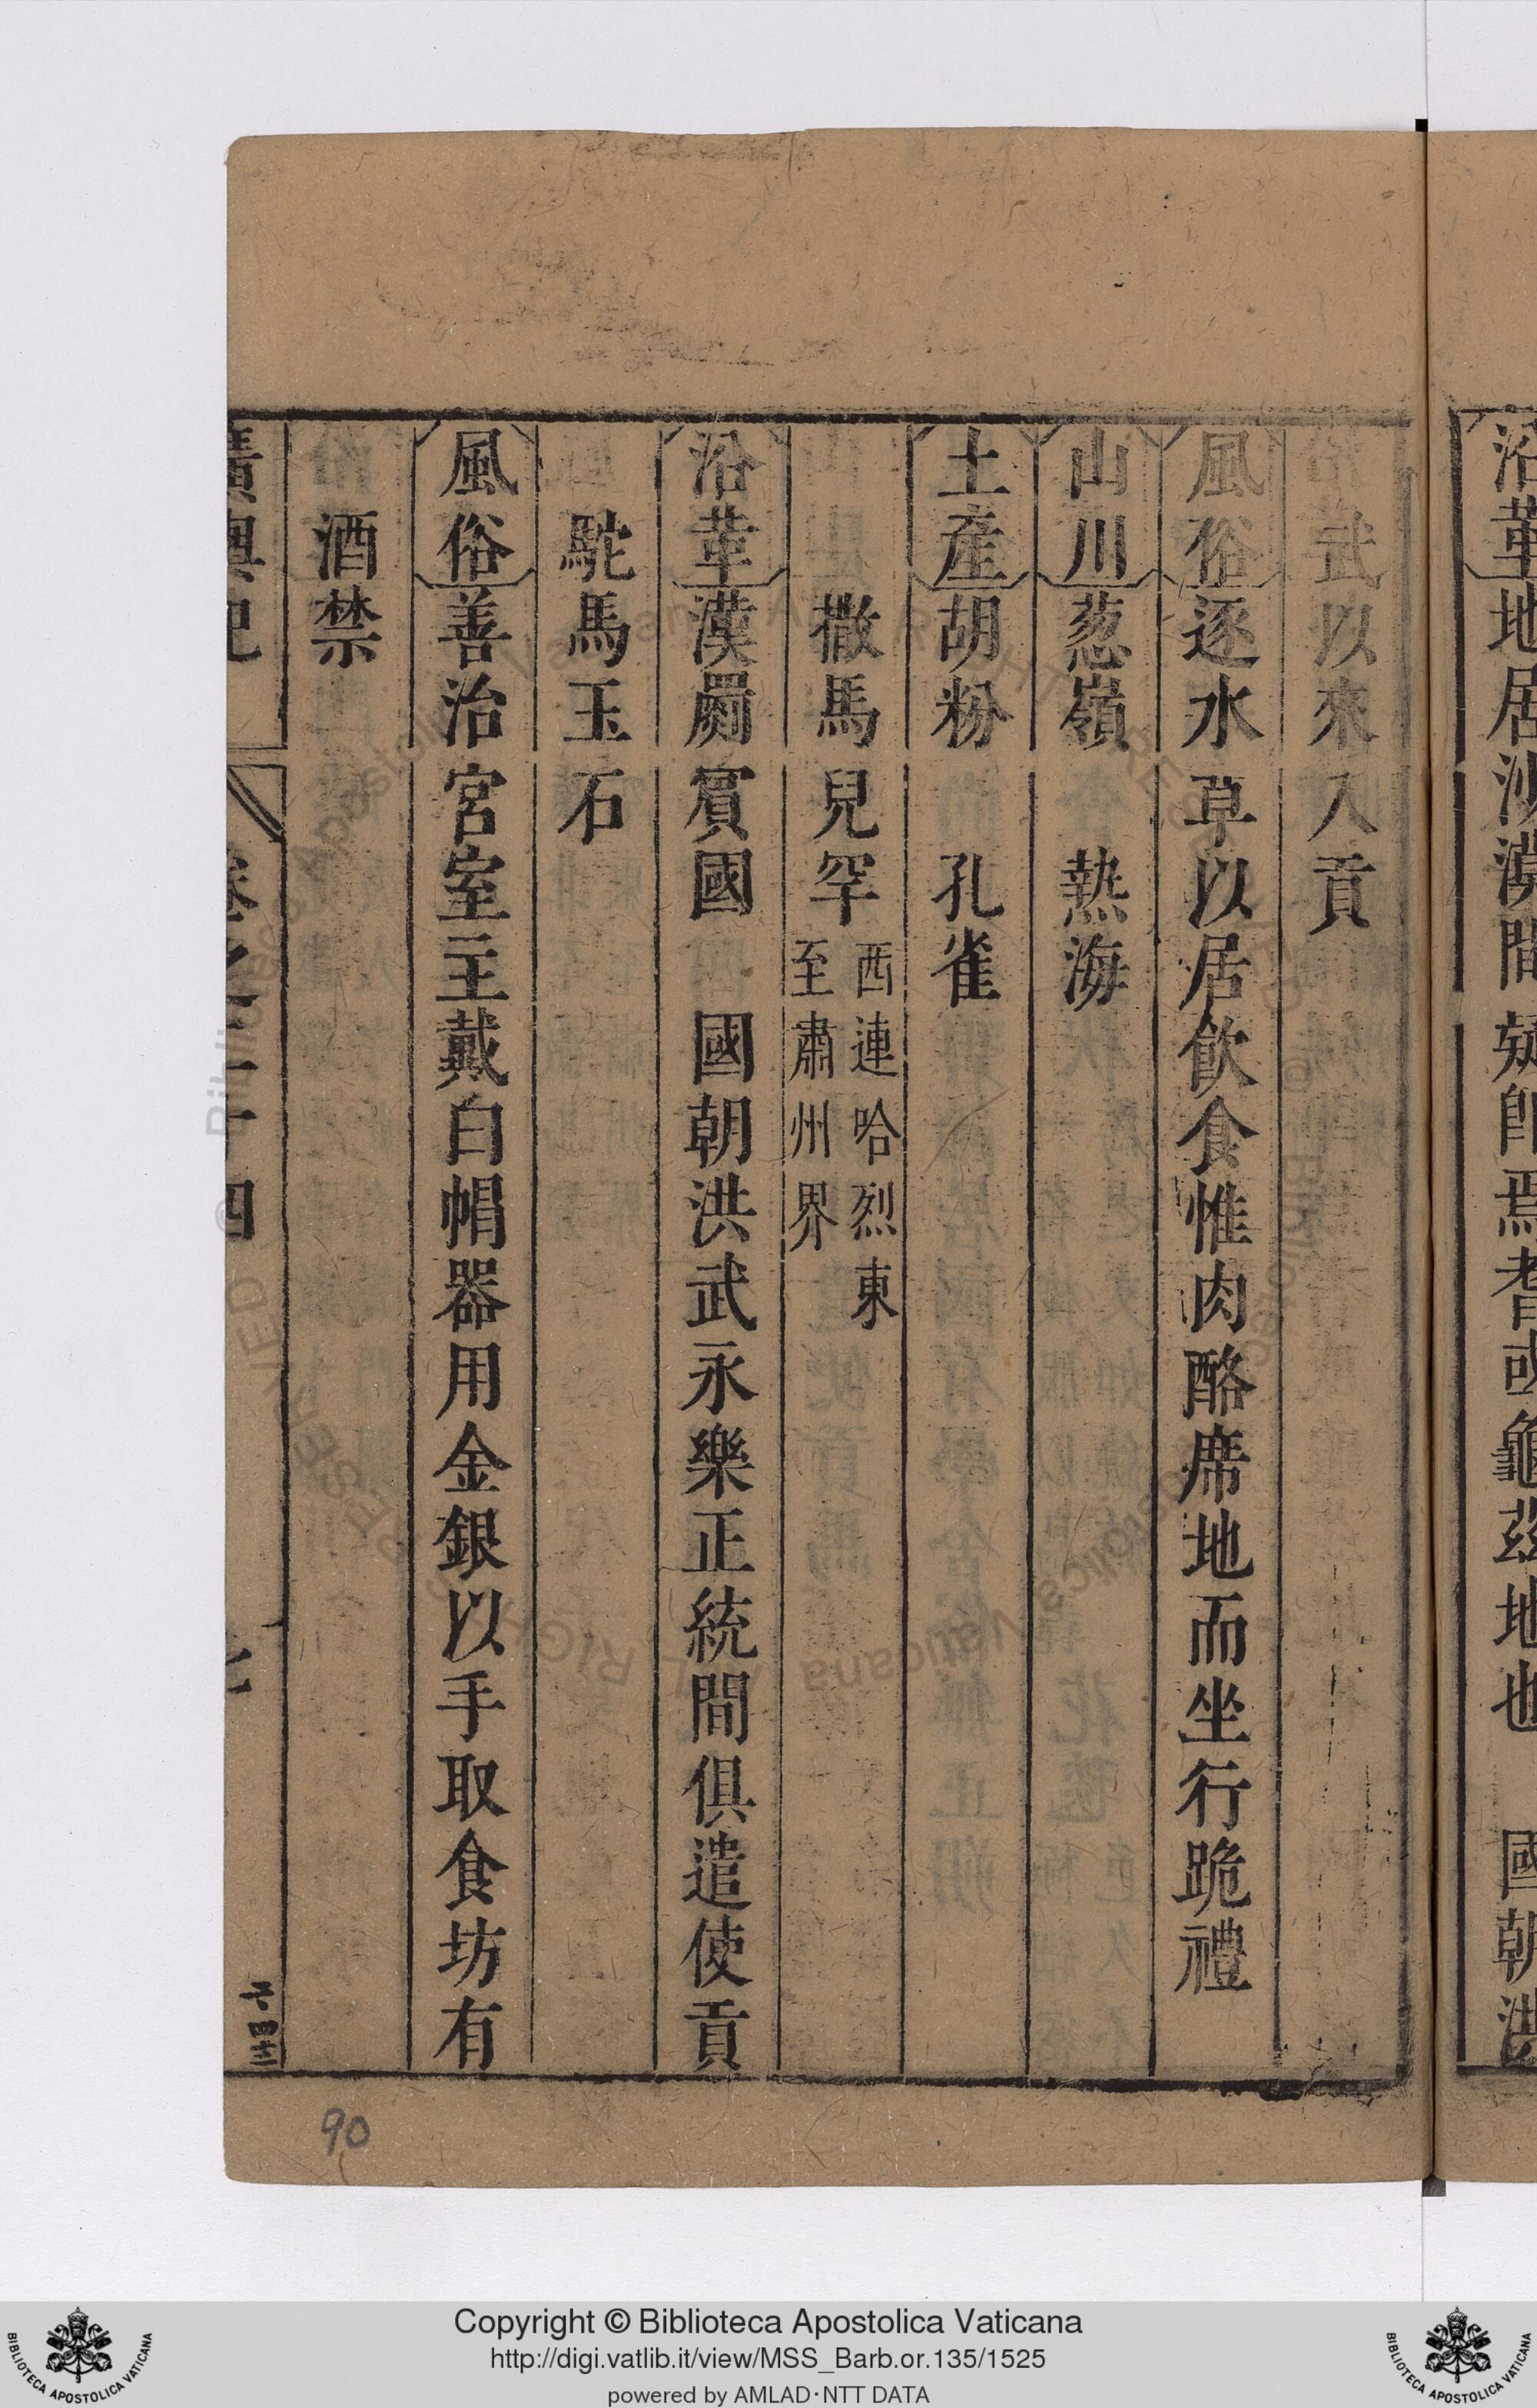 沿革地居沙漠間疑即焉耆或龜茲地也 國朝洪
武以來入貢
風俗逐水草以居飲食惟肉酪席地而坐行跪禮
山川葱嶺 熱海
土産胡粉 孔雀
撒馬兒罕西連哈烈東
至肅州界
沿革漢罽賓國 國朝洪武永樂正統間俱遣使貢
駝馬玉石
風俗善治宮室王戴白帽器用金銀以手取食坊有
酒禁
廣輿記 卷之二十四
90
Copyright © Biblioteca Apostolica Vaticana
http://digi.vatlib.it/view/MSS_Barb.or.135/1525
powered by AMLAD·NTT DATA
BIBLIOTECA APOSTOLICA VATICANA
BIBLIOTECA APOSTOLICA VATICANA